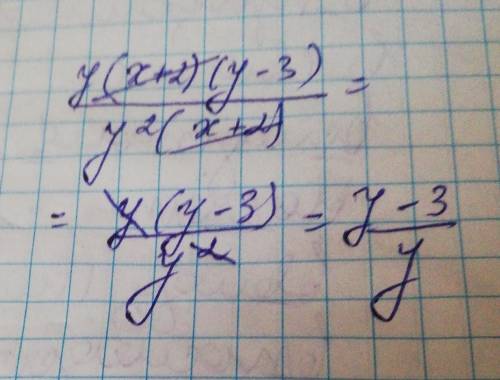 y(x+2)(y-3) / y²(x+2) =
= y(y-3) / y² = y-3 / y